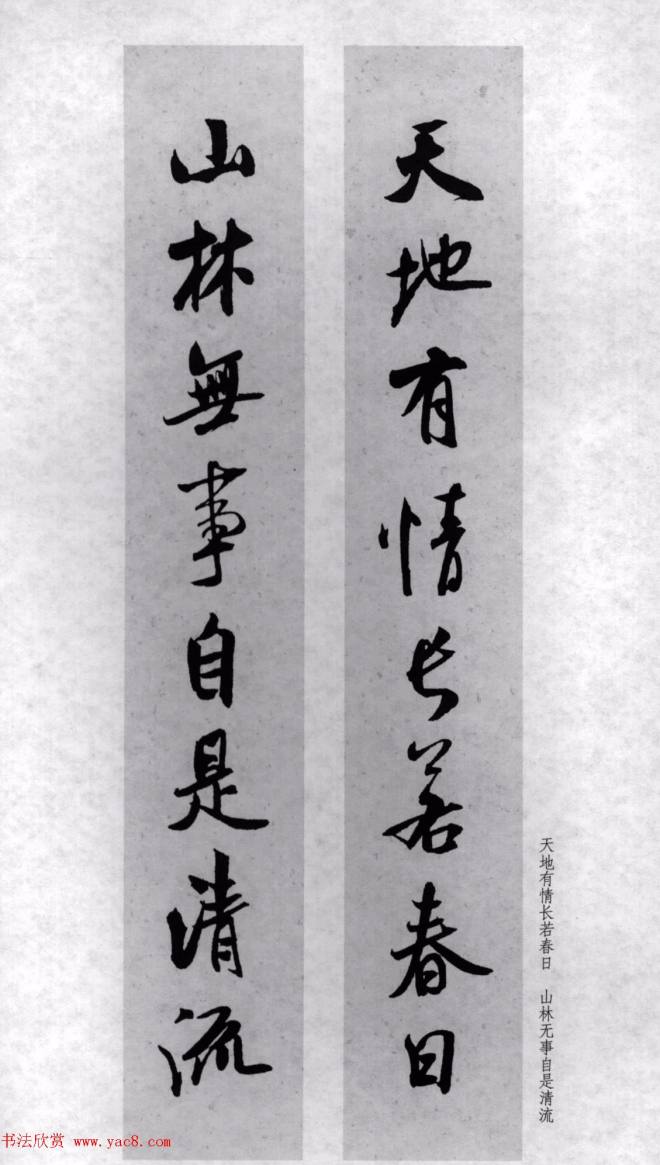 天地有情长若春日
山林無事自是清流
天地有情长若春日 山林无事自是清流
书法欣赏 www.yac8.com